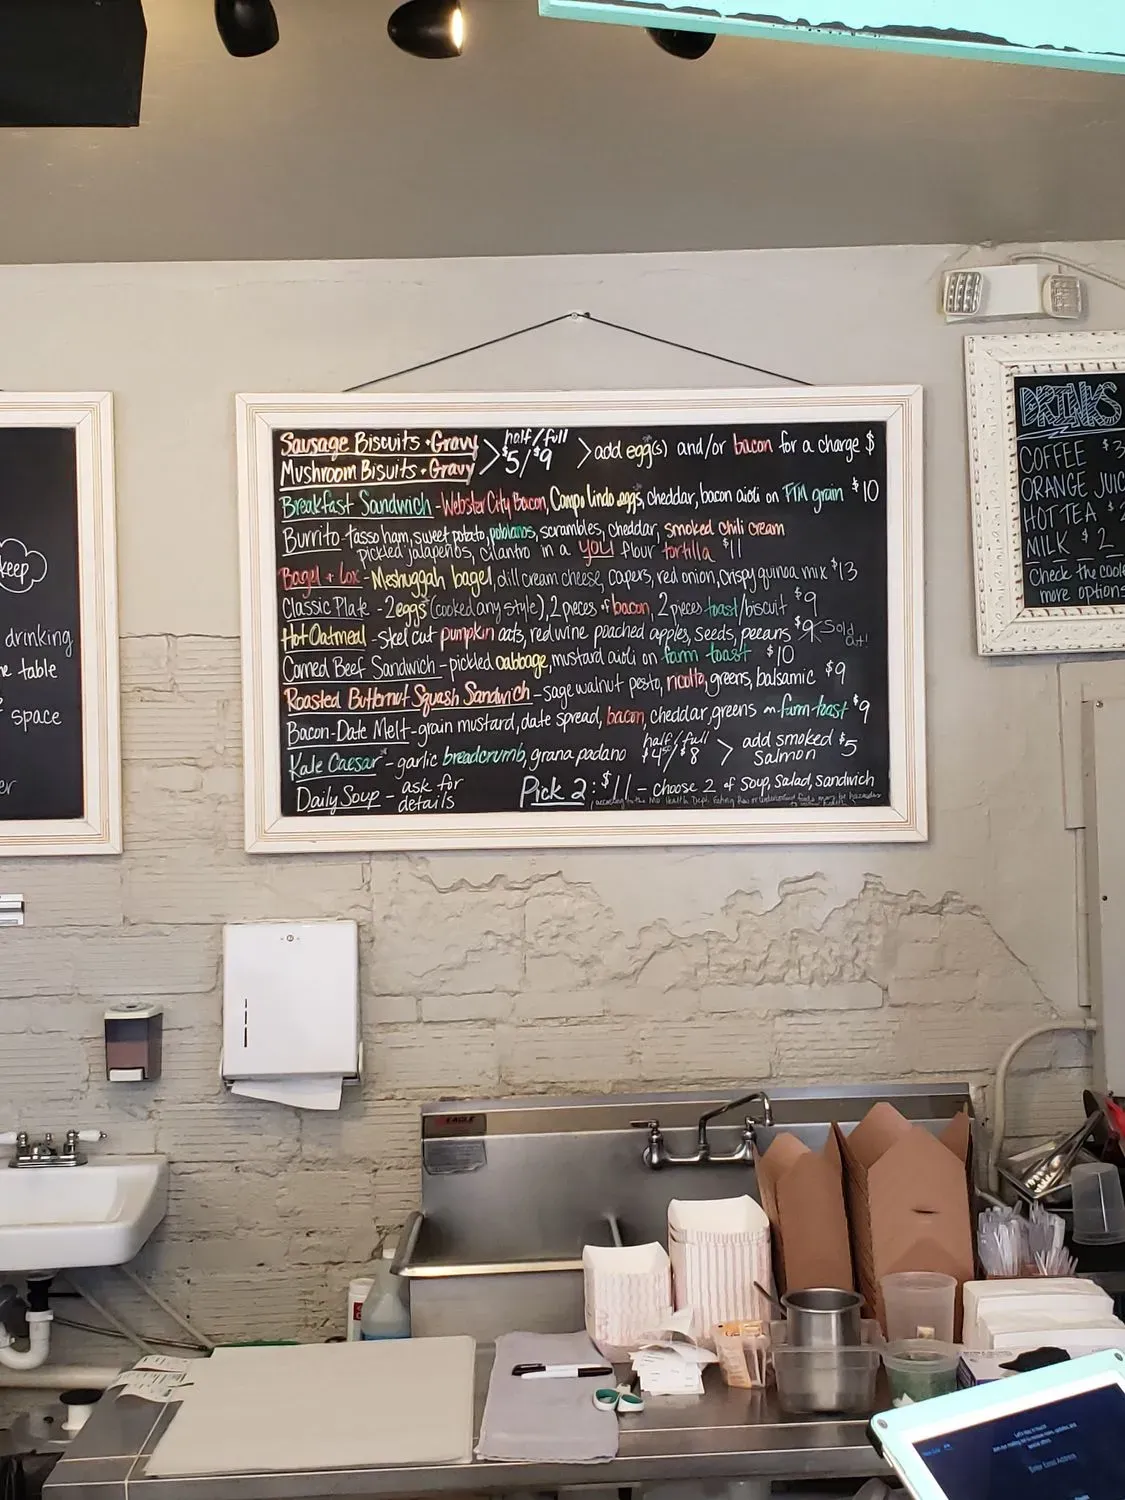 keep
drinking
table
space
Sausage Biscuits + Gravy
Mushroom Biscuits + Gravy
half/full
$5/$9
add egg(s) and/or bacon for a charge $
Breakfast Sandwich - Webster City Bacon, Campo Lindo eggs, cheddar, bacon aioli on FTM grain $10
Burrito - tasso ham, sweet potato, poblanos, scrambles, cheddar, smoked chili cream
pickled jalapeños, cilantro in a YOLI flour tortilla $11
Bagel + Lox - Meshuggah bagel, dill cream cheese, capers, red onion, crispy quinoa mix $13
Classic Plate - 2 eggs (cooked any style), 2 pieces of bacon, 2 pieces toast/biscuit $9
Hot Oatmeal - steel cut pumpkin oats, red wine poached apples, seeds, pecans $9 Sold Out!
Corned Beef Sandwich - pickled cabbage, mustard aioli on farm toast $10
Roasted Butternut Squash Sandwich - sage walnut pesto, ricotta, greens, balsamic $9
Bacon-Date Melt - grain mustard, date spread, bacon, cheddar, greens on farm toast $9
Kale Caesar - garlic breadcrumb, grana padano half/full $4.50/$8 > add smoked Salmon $5
Daily Soup - ask for details
Pick 2: $11 - choose 2 of soup, salad, sandwich
DRINKS
COFFEE $3
ORANGE JUIC
HOT TEA $2
MILK $2
Check the coole
more options
EAGLE